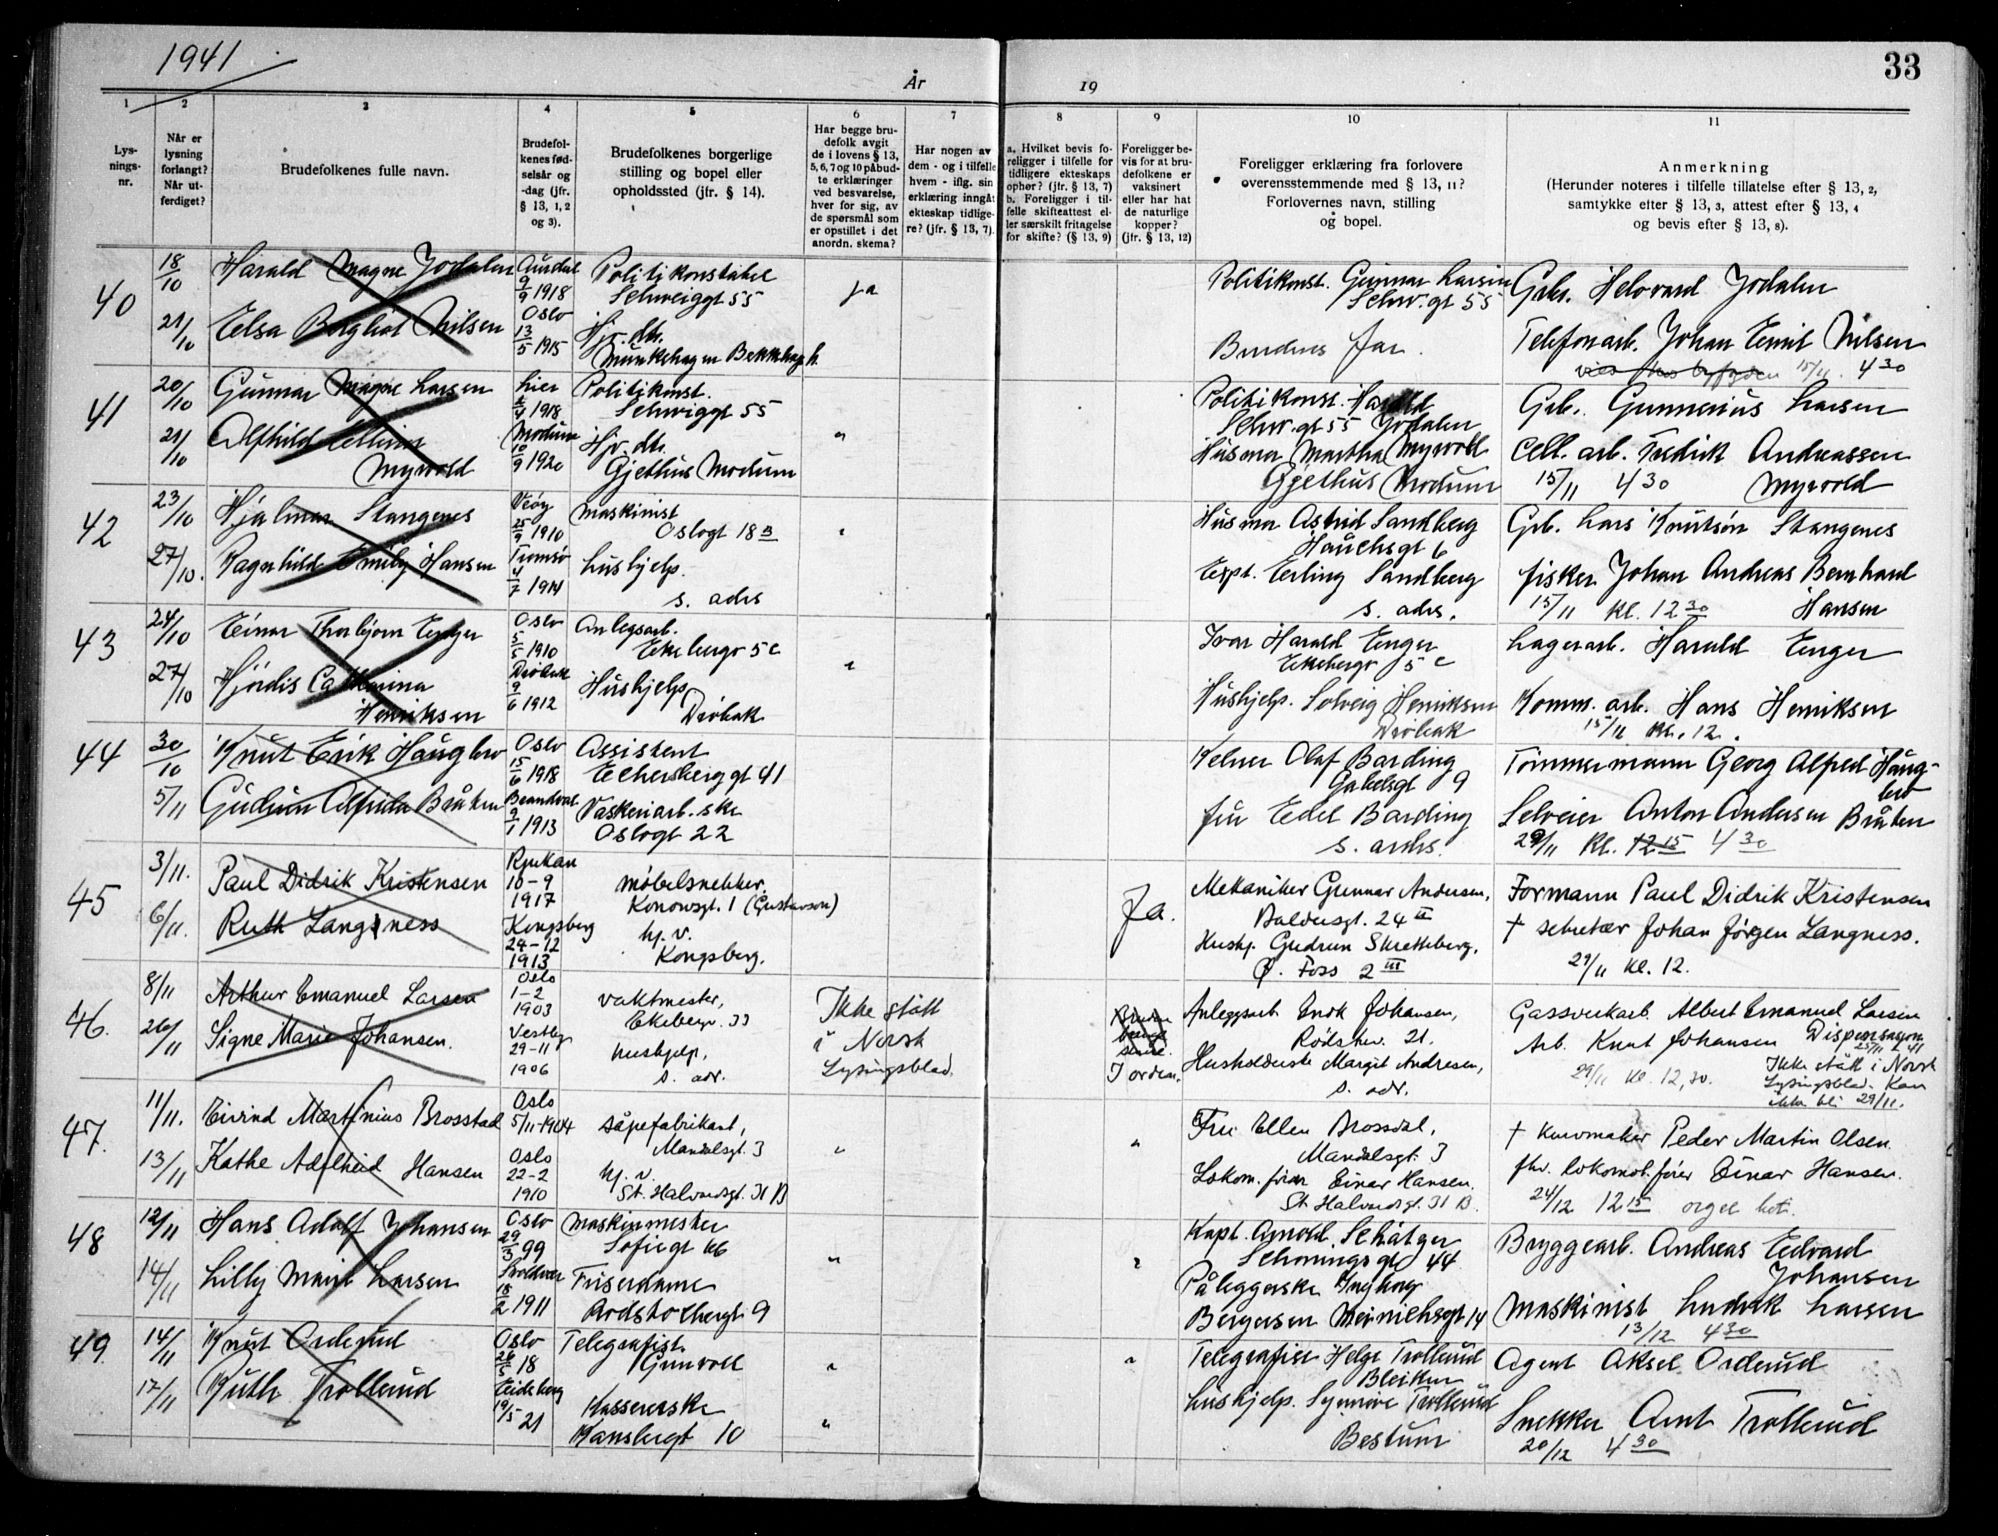 1941
År
19
33
1
2
3
4
5
6
7
8
9
10
11
Lys-
nings-
nr.
Når er
lysning
forlangt?
Når ut-
ferdiget?
Brudefolkenes fulle navn.
Brudefol-
kenes fød-
selsår og
-dag (jfr.
§ 13, 1, 2
og 3).
Brudefolkenes borgerlige
stilling og bopel eller
opholdssted (jfr. § 14).
Har begge bru-
defolk avgit
de i lovens § 13,
5, 6, 7 og 10 påbud-
te erklæringer
ved besvarelse,
hver for sig, av
de spørsmål som
er opstillet i det
anordn. skema?
Har nogen av
dem - og i tilfelle
hvem - iflg. sin
erklæring inngått
ekteskap tidlige-
re? (jfr. § 13, 7).
a. Hvilket bevis fo-
religger i tilfelle for
tidligere ekteskaps
ophør? (jfr. § 13, 7)
b. Foreligger i til-
felle skifteattest el-
ler særskilt fritagelse
for skifte? (§ 13, 9)
Foreligger be-
vis for at bru-
defolkene er
vaksinert
eller har hat
de naturlige
kopper?
(jfr. § 13, 12)
Foreligger erklæring fra forlovere
overensstemmende med § 13, 11?
Forlovernes navn, stilling
og bopel.
Anmerkning
(Herunder noteres i tilfelle tillatelse efter § 13, 2,
samtykke efter § 13, 3, attest efter § 13, 4
og bevis efter § 13, 8).
40
18/10
21/10
Harald Magne Jodalen
Elsa Borghist Nilsen
Aurdal
9/9 1918
Oslo
13/5 1915
Politikonstabel
Schweiggt 55
Hj. dtr.
Munkehagen Bekkelagsh.
ja
Politikonst. Gunnar Larsen
Schw. gt 55
Brudens far.
Grb. Helvard Jodalen
Telefonarb. Johan Emil Nilsen
15/11 4 30
41
20/10
21/10
Gunnar Magne Larsen
Alfhild Ellium
Myrvold
Lier
4 1918
Modum
10/9 1920
Politikonst.
Schwiggt 55
Hj. dtr.
Gjethus Modum
"
Politikonst. Harald
Schw. gt 55 Jodalen
Husmor Martha Myrvold
Gjethus Modum
Grb. Gunnerius Larsen
Cell. arb. Fredrik Andreassen
15/11 4 30 Myrvold
42
23/10
27/10.
Hjalmar Stangenes
Ragnhild Emily Hansen
Veøy
25/9 1910
Tromsø
4/7 1914
Maskinist
Oslogt 18 B
Hushjelp.
s. adrs
"
Husmor Astrid Sandberg
Hauchsgt 6
Expt. Erling Sandberg
s. adrs.
Grb. Lars Knutsøn Stangenes
Fisker Johan Andreas Bernhard
15/11 Kl. 12 30 Hansen
43
24/10
27/10
Einar Thorbjørn Enger
Hjørdis Catharina
Henriksen
Oslo
5/5 1910
Drøbak
9/6 1912
Anlegsarb.
Ekebergv 5 c
Hushjelp
Drøbak
"
Ivar Harald Enger
Ekebergv 5 c
Hushjelp. Solveig Henriksen
Drøbak
Lagerarb. Harald Enger
Komm. arb. Hans Henriksen
15/11 Kl. 12.
44
30/10
5/11
Knut Erik Hauglero
Gudrun Alfrida Bråten
Oslo
15/6 1918
Brandval
9/1 1913
Assistent
Echersberggt 41
Vaskeriarb.ske
Oslogt 22
Kelner Olaf Barding
Gabelsgt 9
Fru Edel Barding
s. adrs.
Tømmermann Georg Alfred Haug-
lero
Selveier Anton Andersen Bråten
29/11 Kl. 12 15 4 30
45
3/11.
6/11.
Paul Didrik Kristensen
Ruth Langness
Rjukan
10-9
1917
Kongsberg
24-12
1913
Møbelsnekker,
Konowsgt. 1 (Gustavson)
hj. v.
Kongsberg.
Ja.
Mekaniker Gunnar Andersen,
Baldersgt. 24 II
Hushj. Gudrun Skretteberg,
Ø. Foss 2 III
Formann Paul Didrik Kristensen
† sekretær Johan Jørgen Langness.
29/11 Kl. 12.
46.
8/11
26/11
Arthur Emanuel Larsen
Signe Marie Johansen.
Oslo
1-2
1903
Vestby
29-11
1906
vaktmester,
Ekebergv. 33
hushjelp,
s. adr.
Ikke stått
i Norsk
Lysingsblad.
I orden.
Anleggsarb Enok Johansen,
Rødshv. 21.
Husholderske Margit Andresen,
s. adr.
Gassverkarb. Albert Emanuel Larsen
Arb. Knut Johansen Dispensasjon
25/11 41
29/11 Kl. 12,30.
Ikke stått i Norsk
Lysingsblad. Kan
ikke bli 29/11.
47.
11/11.
13/11
Eivind Martinius Brosstad
Kathe Adelheid Hansen
Oslo
5/11-1904
Oslo
22-2
1910
såpefabrikant,
Mandalsgt. 3
hj. v.
St. Halvardsgt. 31 B
"
"
Fru Ellen Brossdal,
Mandalsgt. 3
Lokom. fører Einar Hansen.
St. Halvardsgt. 31 B.
† kurvmaker Peder Martin Olsen.
fhv. lokomot.fører Einar Hansen.
24/12 12 15 orgel bet.
48
12/11
14/11
Hans Adolf Johansen
Lilly Marie Larsen
Oslo
29/3 99
Svolvær
18/2 1911
Maskinmester
Sofiegt 66
Friserdame
Rodstocbergt. 9
"
"
Kapt. Arnold Schåtger
Schøningsgt 44
Påleggerske Ingborg
Bergersen Meinichsgt 14
Bryggearb. Andreas Edvard
Johansen
Maskinist Ludvik Larsen
13/12 4 30
49.
14/11
17/11
Knut Orderud
Ruth Trollerud
Oslo
26/5 18
Eidsberg
19/5 21
Telegrafist.
Gunvoll
Kassererske
Kansbergt 10
"
"
"
Telegrafist Helge Trollerud
Bleiken
Hushjelp. Synnøve Trollerud
Bestum
Agent Aksel Orderud
Snekker Arnt Trollerud
20/12 4 30